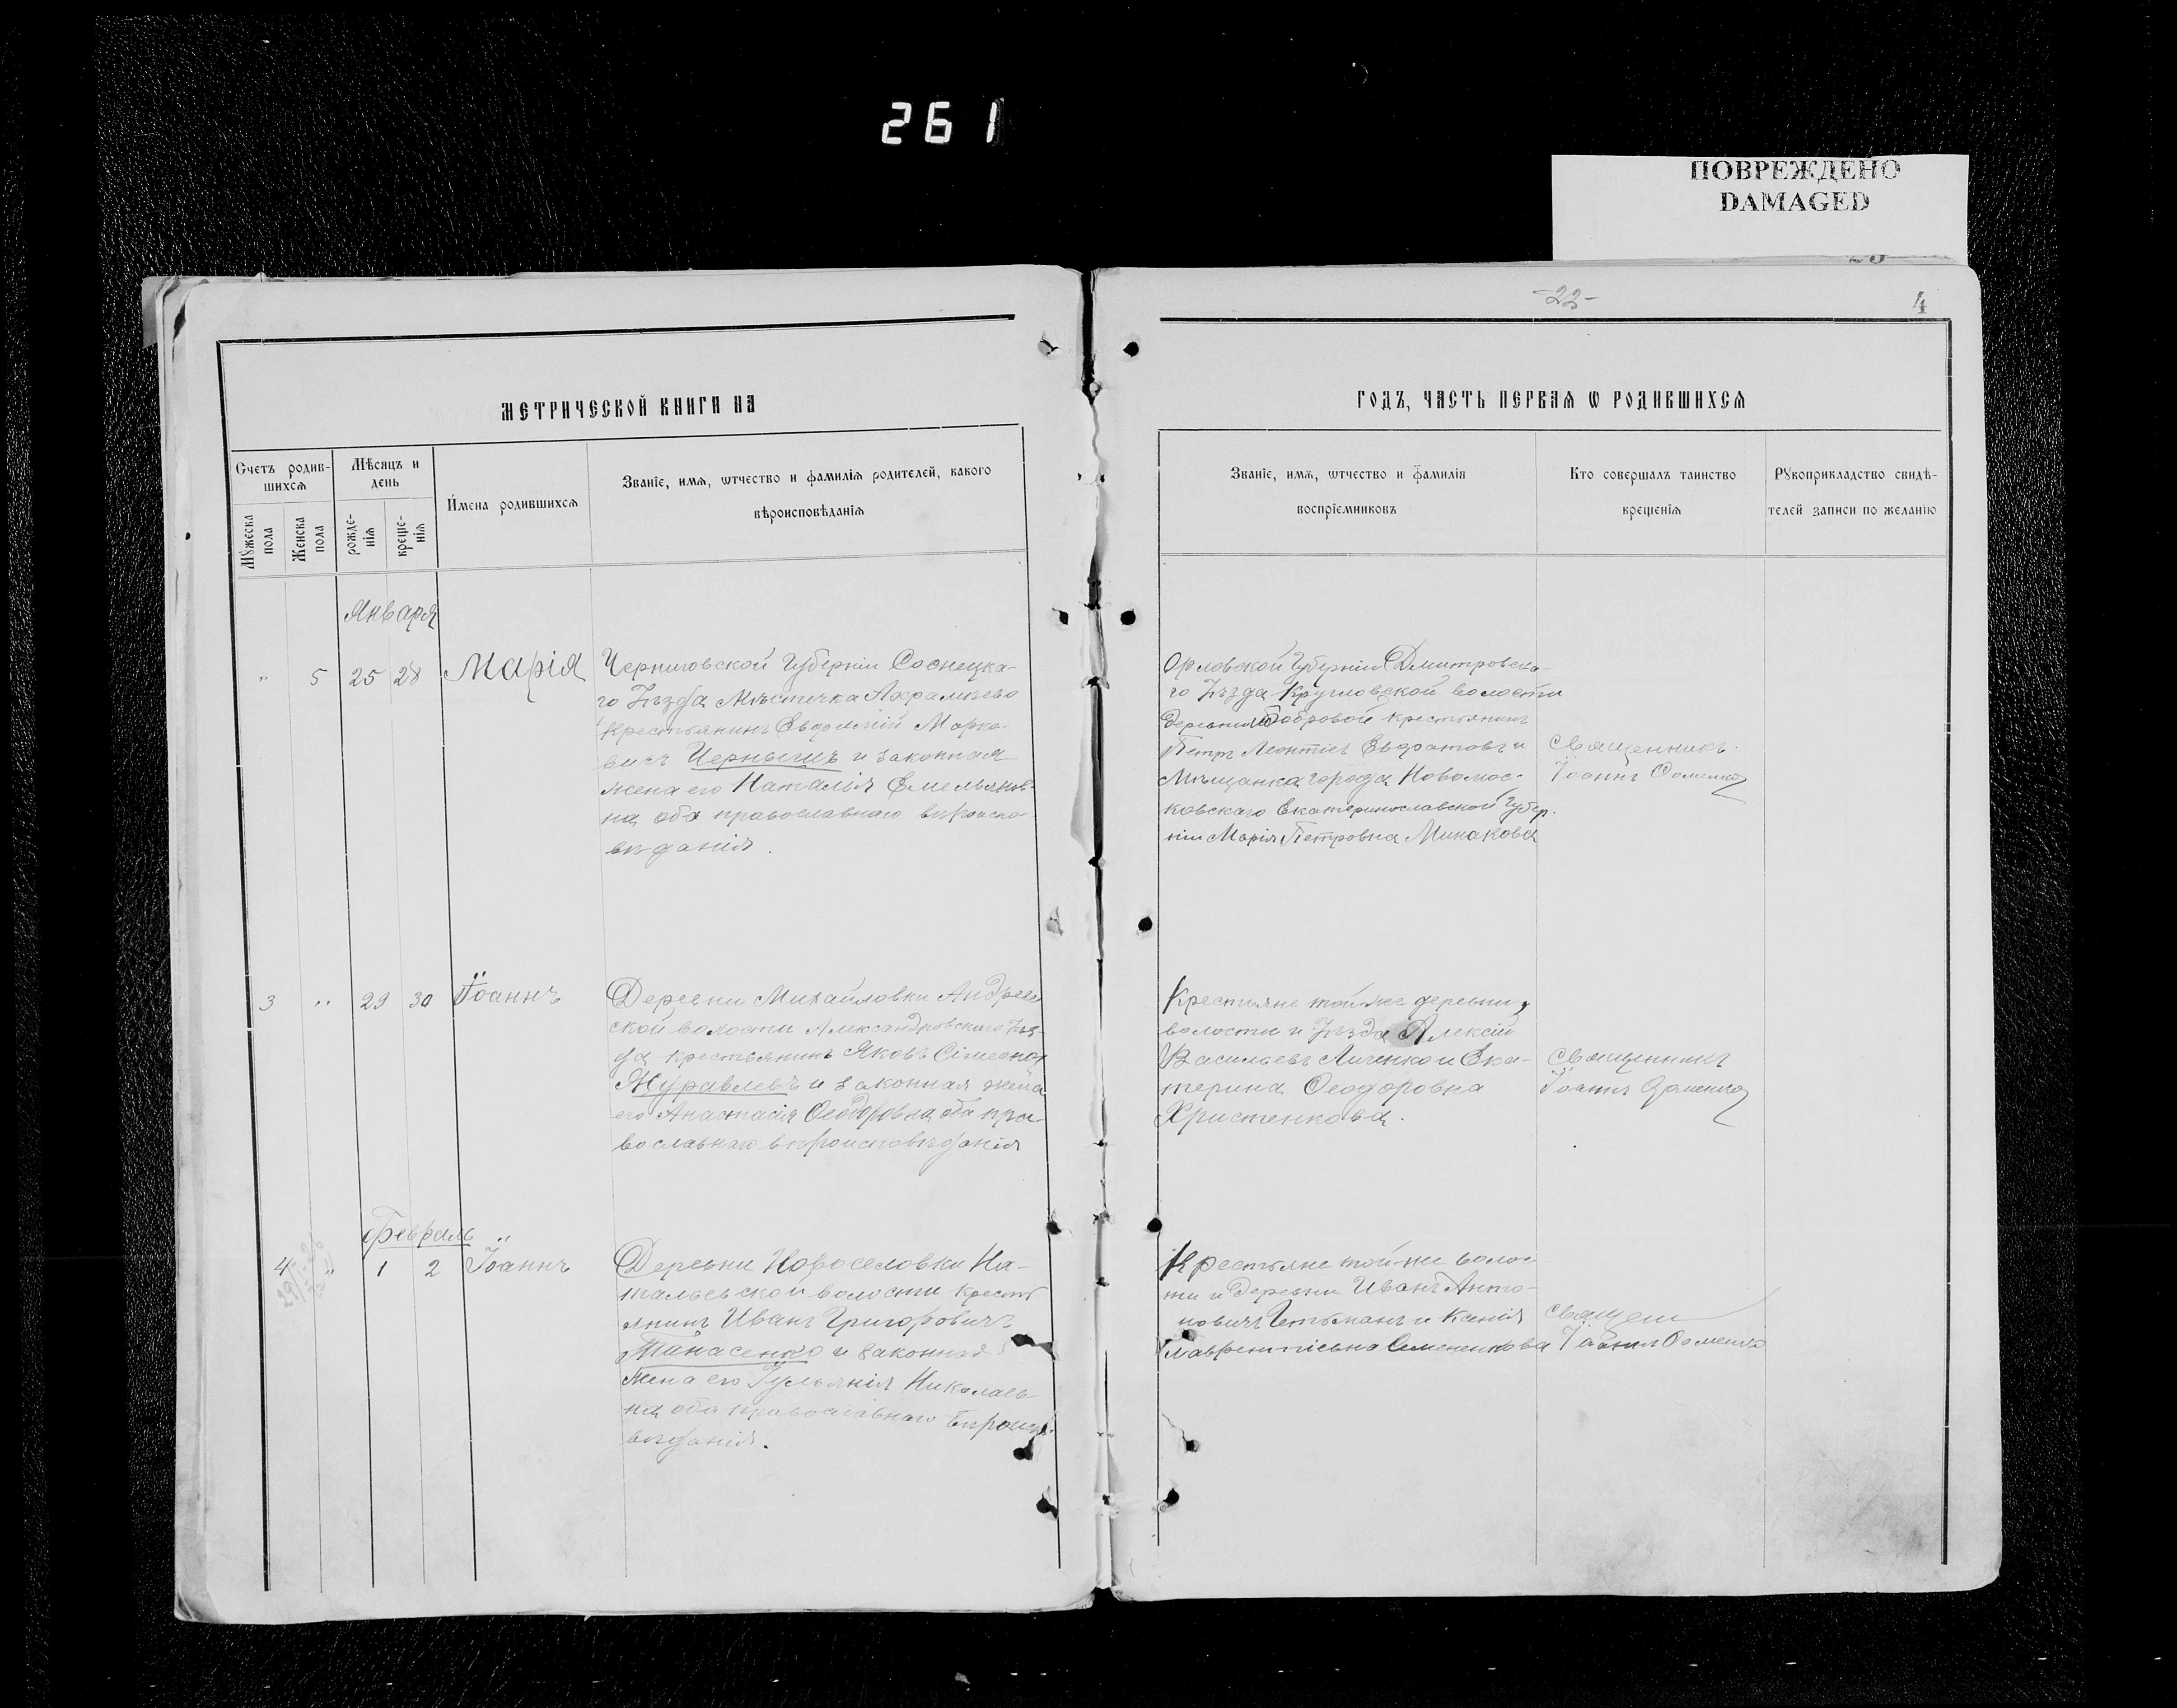 261
ПОВРЕЖДЕНО
DAMAGED
-22-
4
МЕТРИЧЕСКОЙ КНИГИ НА
ГОДЪ, ЧАСТЬ ПЕРВАѦ Ѡ РОДИВШИХСѦ
Счетъ родив-
шихсѧ
Мѣсяцъ и
день
Имена родившихсѧ
Званїе, имѧ, ѡтчество и фамилїѧ родителей, какого
вѣроисповѣданїѧ
Мꙋжеска
пола
Женска
пола
рожде-
нїѧ
креще-
нїѧ
Званїе, имѧ, ѡтчество и фамилїѧ
воспрїемниковъ
Кто совершалъ таинство
крещенїѧ
Рꙋкоприкладство свидѣ-
телей записи по желанїю
Января
" 5 25 28 Марія
Черниговской Губерніи Соснецка-
го Уѣзда Мѣстечка
крестьянинъ Евфимій Марко-
вичъ Чернышъ и законная
жена его Наталья Емельянов-
на оба православнаго вѣроиспо-
вѣданія.
Орловской Губерніи Дмитровска-
го Уѣзда Кругловской волости
деревни Бобровой крестьянинъ
Петръ Леонтіевъ и
Мѣщанка города Новомос-
ковскаго Екатеринославской Губер-
ніи Марія Петровна Минакова
Священникъ
Іоаннъ
3 " 29 30 Іоаннъ
Деревни Михайловки Андреев
ской волости Александровскаго Уѣз-
да крестьянинъ Яковъ Сімеонов
Журавлевъ и законная жена
его Анастасія Феодоровна оба пра-
вославнаго вѣроисповѣданія
Крестьяне той-же деревни,
волости и Уѣзда Алексій
Васильевъ и Ека-
терина Феодоровна
Христенкова.
Священникъ
Іоаннъ
Февраль
4 " 1 2 Іоаннъ
Деревни Новоселовки На-
тальевской волости кресть
янинъ Иванъ Григоровичъ
Танасенко и законная
жена его Іульянія Николаев-
на оба православнаго вѣроиспо
вѣданія.
Крестьяне той-же волос
ти и деревни Иванъ Анто-
новичъ Гетьманъ и Ксенія
Лаврентіевна Семененкова
Священ
Іоаннъ